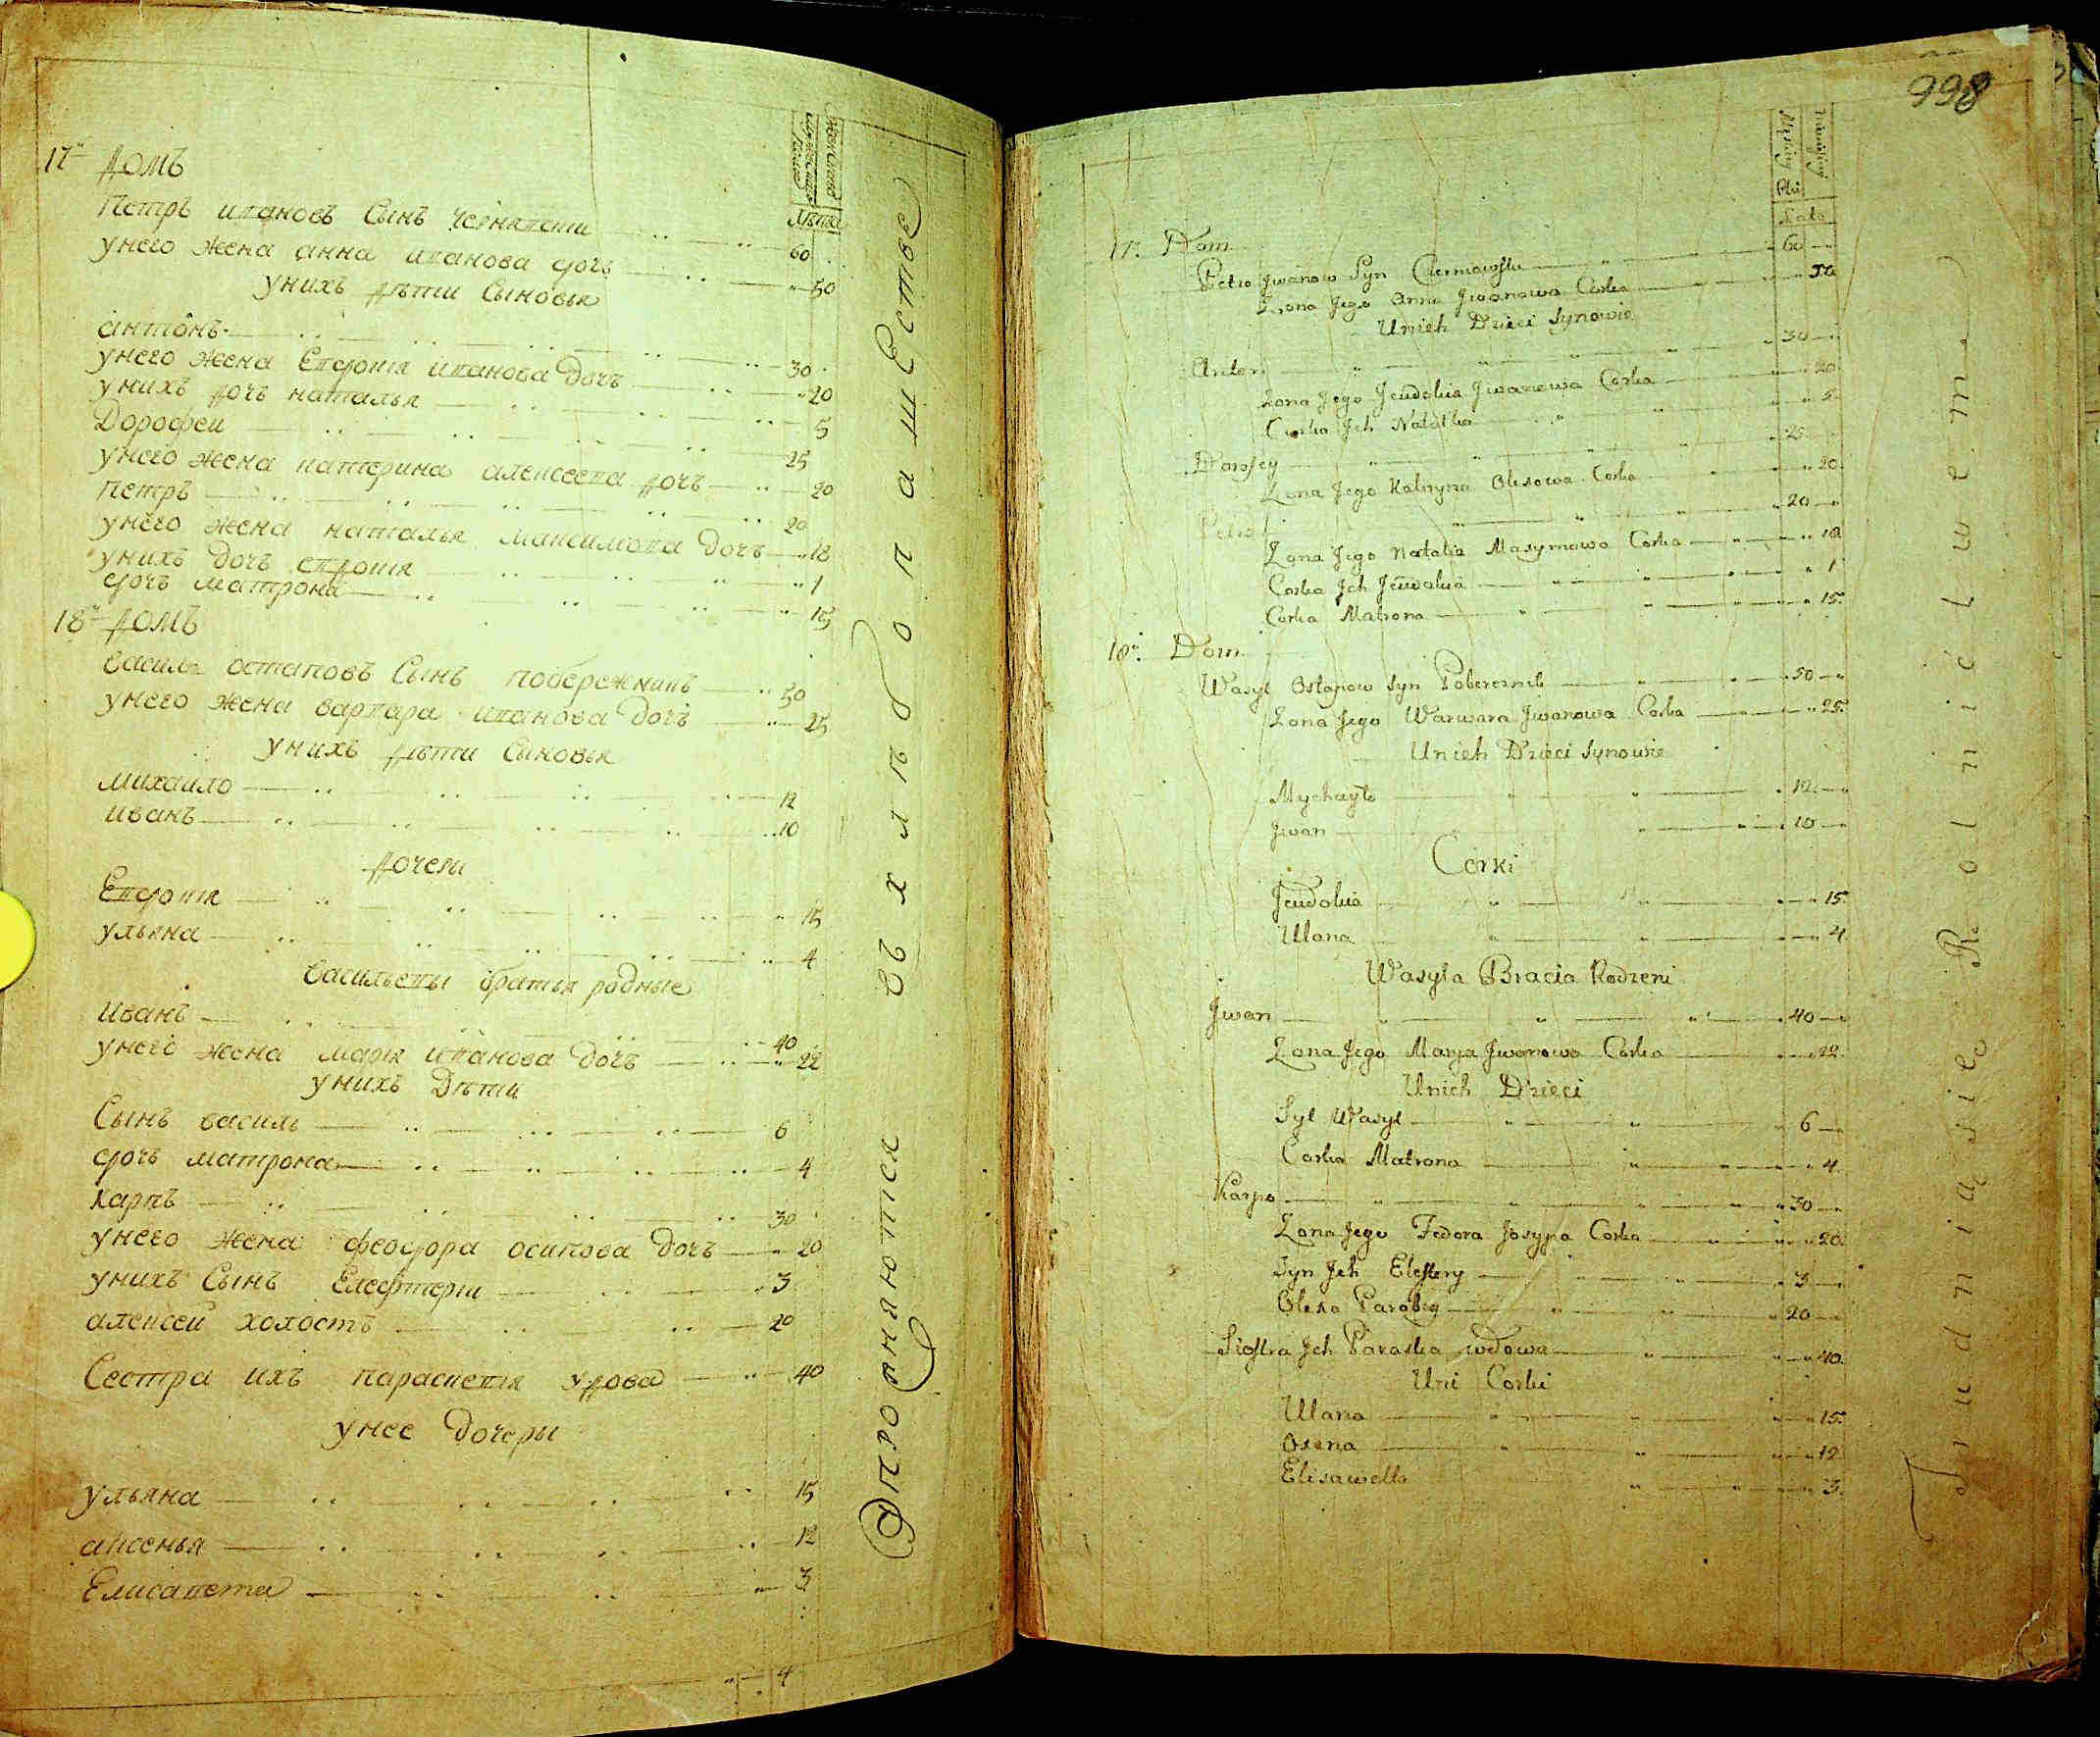 17й домъ
Женска
мужеска
полу
Лѣта
Петръ ивановъ Сынъ Чернявски 60
унего жена анна иванова дочь 50
унихъ дѣти Сыновья
антонъ 30
унего жена Евдокия иванова дочь 20
унихъ дочь наталья 5
Дорофеи 25
унего жена катерина алексеева дочь 20
петръ 20
унего жена наталья максимова дочь 18
унихъ дочь евдокия 1
дочь матрона 15
18й домъ
Василь остаповъ Сынъ побережникъ 50
унего жена варвара иванова дочь 25
унихъ дѣти Сыновья
михаило 12
иванъ 10
дочери
Евдокия 15
ульяна 4
васильевы братья родные
иванъ 40
унего жена марья иванова дочь 22
унихъ Дѣти
Сынъ василь 6
дочь матрона 4
карпъ 30
унего жена феодора осипова дочь 20
унихъ Сынъ Елефтери 3
алексей холостъ 20
Сестра ихъ параскевия удова 40
унее дочери
ульяна 15
аксенья 12
Елисавета 3
4
упрожняются въ хлѣбопашестве
998
Męskiey
Płci
Lata
17. Dom
Petro Jwanow Syn Czerniawski 60
Zona Jego Anna Jwanowa Corka 50
Unich Dzieci Synowie
Anton 30
Zona Jego Jewdokia Jwanowa Corka 20
Corka Jch Natalka 5
Dorofey 25
Zona Jego Kateryna Olexowa Corka 20
Petro 20
Zona Jego Natalia Maxymowa Corka 18
Corka Jch Jewdokia 1
Corka Matrona 15
18. Dom
Wasyl Ostapow Syn Pobereznik 50
Zona Jego Warwara Jwanowa Corka 25
Unich Dzieci Synowie
Mychayło 12
Jwan 10
Corki
Jewdokia 15
Ulana 4
Wasyla Bracia Rodzeni
Jwan 40
Zona Jego Marya Jwanowa Corka 22
Unich Dzieci
Syl Wasyl 6
Corka Matrona 4
Karpo 30
Zona Jego Fedora Josypa Corka 20
Syn Jch Eleftery 3
Olexa Parobcy 20
Siostra Jch Paraska wdowa 40
Uni Corki
Ulana 15
Oxena 12
Elisawetta 3
Trudnią się Rolnictwem